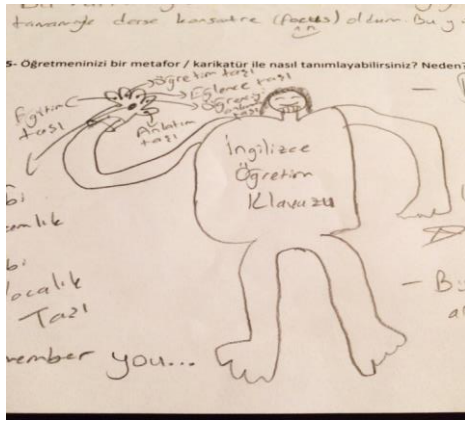 tamamıyla derse konsantre (focus) oldum. Bu y
5- Öğretmeninizi bir metafor / karikatür ile nasıl tanımlayabilirsiniz? Neden?
Öğretim tazı
Eğlence tazı
Eğitim
tazı
Anlatım
tazı
İngilizce
Öğretim
Klavuzu
bi
bi
ocalık
Tazı
- Bu
member you...